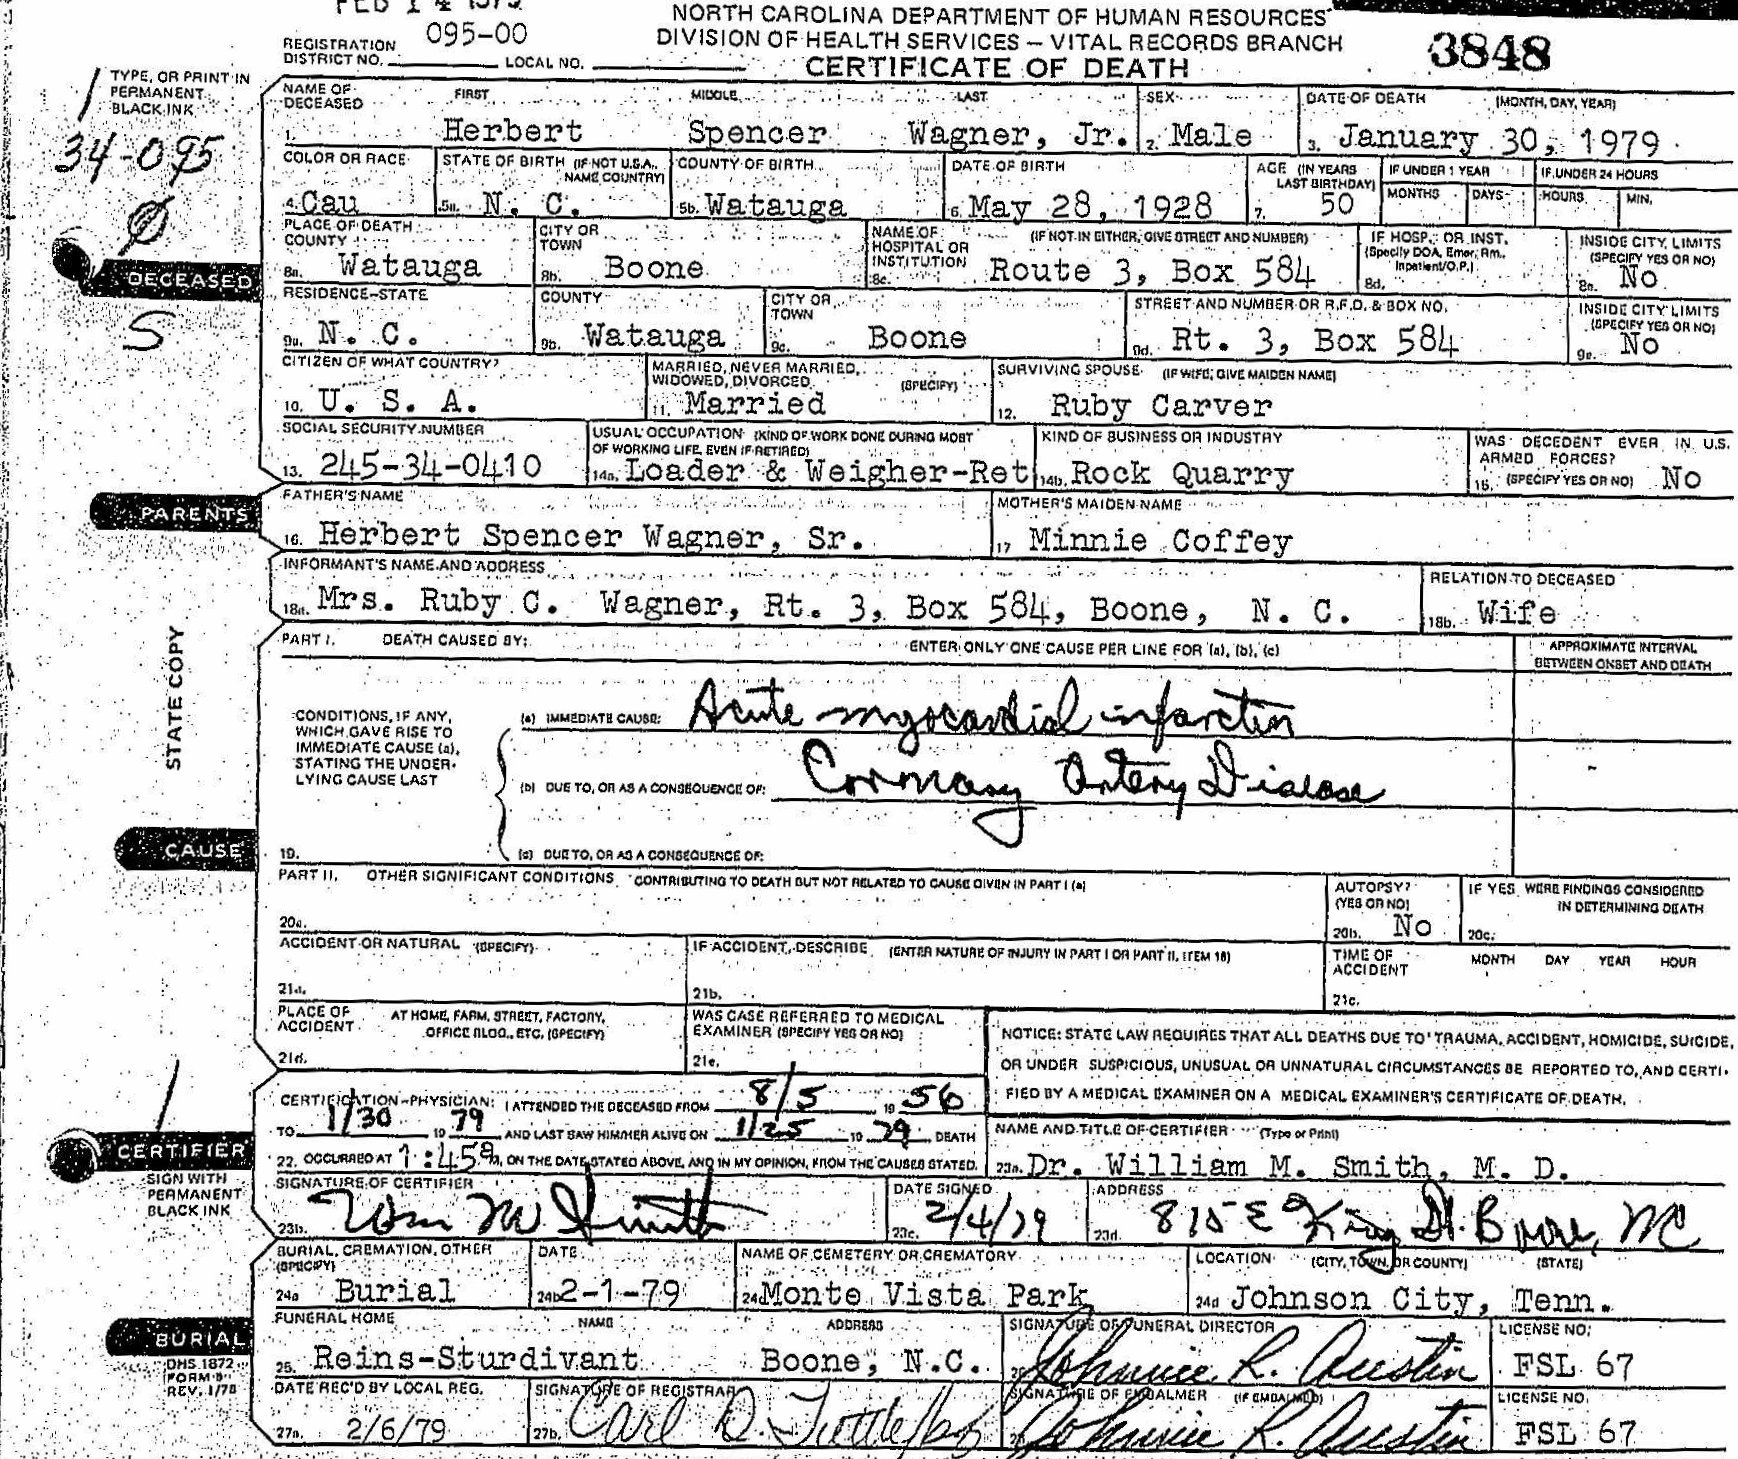 FEB 14 1979
NORTH CAROLINA DEPARTMENT OF HUMAN RESOURCES
DIVISION OF HEALTH SERVICES – VITAL RECORDS BRANCH
CERTIFICATE OF DEATH
3848
REGISTRATION DISTRICT NO. 095-00 LOCAL NO.
TYPE, OR PRINT IN
PERMANENT
BLACK INK
34-095
DECEASED
S
NAME OF DECEASED FIRST MIDDLE LAST SEX DATE OF DEATH (MONTH, DAY, YEAR)
1. Herbert Spencer Wagner, Jr. 2. Male 3. January 30, 1979
COLOR OR RACE STATE OF BIRTH (IF NOT U.S.A., NAME COUNTRY) COUNTY OF BIRTH DATE OF BIRTH AGE (IN YEARS LAST BIRTHDAY) IF UNDER 1 YEAR IF UNDER 24 HOURS
MONTHS DAYS HOURS MIN.
4. Cau 5a. N. C. 5b. Watauga 6. May 28, 1928 7. 50
PLACE OF DEATH COUNTY CITY OR TOWN NAME OF HOSPITAL OR INSTITUTION (IF NOT IN EITHER, GIVE STREET AND NUMBER) IF HOSP. OR INST. (Specify DOA, Emer. Rm., Inpatient/O.P.) INSIDE CITY LIMITS (SPECIFY YES OR NO)
8a. Watauga 8b. Boone 8c. Route 3, Box 584 8d. 8e. No
RESIDENCE–STATE COUNTY CITY OR TOWN STREET AND NUMBER OR R.F.D. & BOX NO. INSIDE CITY LIMITS (SPECIFY YES OR NO)
9a. N. C. 9b. Watauga 9c. Boone 9d. Rt. 3, Box 584 9e. No
CITIZEN OF WHAT COUNTRY? MARRIED, NEVER MARRIED, WIDOWED, DIVORCED (SPECIFY) SURVIVING SPOUSE (IF WIFE, GIVE MAIDEN NAME)
10. U. S. A. 11. Married 12. Ruby Carver
SOCIAL SECURITY NUMBER USUAL OCCUPATION (KIND OF WORK DONE DURING MOST OF WORKING LIFE, EVEN IF RETIRED) KIND OF BUSINESS OR INDUSTRY WAS DECEDENT EVER IN U.S. ARMED FORCES?
13. 245-34-0410 14a. Loader & Weigher-Ret 14b. Rock Quarry 15. (SPECIFY YES OR NO) No
PARENTS
FATHER'S NAME MOTHER'S MAIDEN NAME
16. Herbert Spencer Wagner, Sr. 17 Minnie Coffey
INFORMANT'S NAME AND ADDRESS RELATION TO DECEASED
18a. Mrs. Ruby C. Wagner, Rt. 3, Box 584, Boone, N. C. 18b. Wife
STATE COPY
PART I. DEATH CAUSED BY: ENTER ONLY ONE CAUSE PER LINE FOR (a), (b), (c) APPROXIMATE INTERVAL BETWEEN ONSET AND DEATH
CONDITIONS, IF ANY,
WHICH GAVE RISE TO
IMMEDIATE CAUSE (a),
STATING THE UNDER-
LYING CAUSE LAST
(a) IMMEDIATE CAUSE: Acute myocardial infarction
(b) DUE TO, OR AS A CONSEQUENCE OF: Coronary Artery Disease
CAUSE
19. (c) DUE TO, OR AS A CONSEQUENCE OF:
PART II. OTHER SIGNIFICANT CONDITIONS CONTRIBUTING TO DEATH BUT NOT RELATED TO CAUSE GIVEN IN PART I (a) AUTOPSY? (YES OR NO) IF YES WERE FINDINGS CONSIDERED IN DETERMINING DEATH
20a. 20b. No 20c.
ACCIDENT OR NATURAL (SPECIFY) IF ACCIDENT, DESCRIBE (ENTER NATURE OF INJURY IN PART I OR PART II, ITEM 18) TIME OF ACCIDENT MONTH DAY YEAR HOUR
21a. 21b. 21c.
PLACE OF ACCIDENT AT HOME, FARM, STREET, FACTORY, OFFICE BLDG., ETC. (SPECIFY) WAS CASE REFERRED TO MEDICAL EXAMINER (SPECIFY YES OR NO)
21d. 21e.
NOTICE: STATE LAW REQUIRES THAT ALL DEATHS DUE TO TRAUMA, ACCIDENT, HOMICIDE, SUICIDE,
OR UNDER SUSPICIOUS, UNUSUAL OR UNNATURAL CIRCUMSTANCES BE REPORTED TO, AND CERTI-
FIED BY A MEDICAL EXAMINER ON A MEDICAL EXAMINER'S CERTIFICATE OF DEATH.
CERTIFICATION–PHYSICIAN: I ATTENDED THE DECEASED FROM 8/5 19 56
TO 1/30 19 79 AND LAST SAW HIM/HER ALIVE ON 1/25 19 79 DEATH
22. OCCURRED AT 1:45 a m, ON THE DATE STATED ABOVE, AND IN MY OPINION, FROM THE CAUSES STATED.
NAME AND TITLE OF CERTIFIER (Type or Print)
23a. Dr. William M. Smith, M. D.
CERTIFIER
SIGN WITH
PERMANENT
BLACK INK
SIGNATURE OF CERTIFIER DATE SIGNED ADDRESS
23b. Wm M Smith 23c. 2/4/79 23d. 815 E King St. Boone, NC
BURIAL, CREMATION, OTHER (SPECIFY) DATE NAME OF CEMETERY OR CREMATORY LOCATION (CITY, TOWN, OR COUNTY) (STATE)
24a Burial 24b 2-1-79 24c Monte Vista Park 24d Johnson City, Tenn.
BURIAL
DHS 1872
FORM 8
REV. 1/78
FUNERAL HOME NAME ADDRESS SIGNATURE OF FUNERAL DIRECTOR LICENSE NO.
25. Reins-Sturdivant Boone, N.C. 26. Johnnie R. Austin FSL 67
DATE REC'D BY LOCAL REG. SIGNATURE OF REGISTRAR SIGNATURE OF EMBALMER (IF EMBALMED) LICENSE NO.
27a. 2/6/79 27b. Carl D. Tuttle Johnnie R. Austin FSL 67